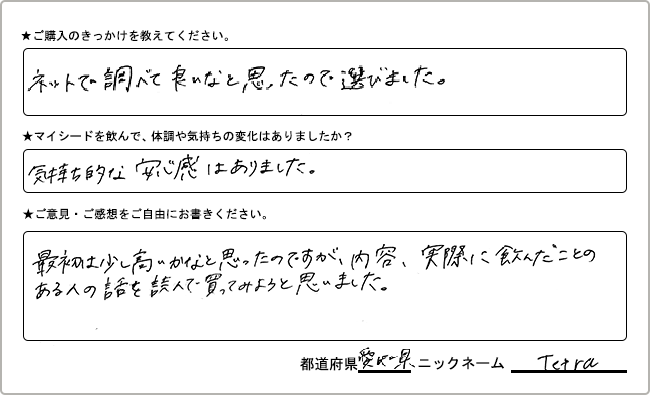 ★ご購入のきっかけを教えてください。
ネットで調べて良いなと思ったので選びました。
★マイシードを飲んで、体調や気持ちの変化はありましたか？
気持ち的な安心感はありました。
★ご意見・ご感想をご自由にお書きください。
最初は少し高いかなと思ったのですが、内容、実際に飲んだことの
ある人の話を読んで買ってみようと思いました。
都道府県 愛知県 ニックネーム Tetra